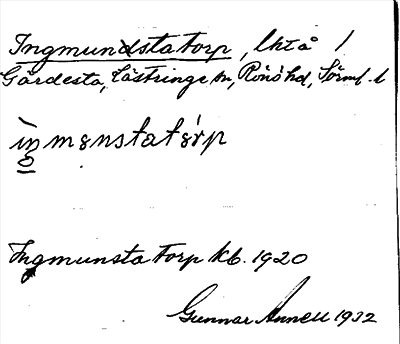 Ingmundstatorp, lht å /
Gärdesta, Lästringe sn, Rönö hd, Sörml. l
ìŋmɘnstatòrp
Ingmunsta torp kb. 1920
Gunnar Annell 1932